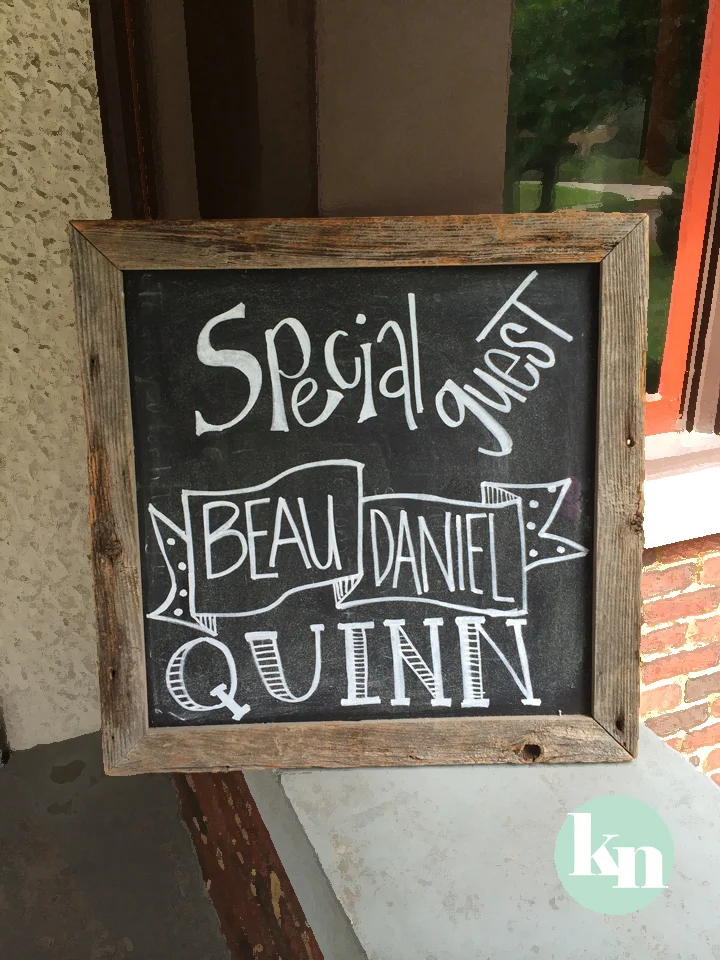 Special guest
BEAU DANIEL
QUINN
kn